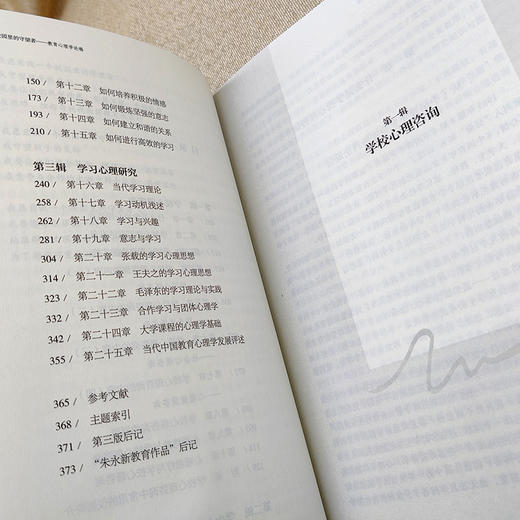 园里的守望者——教育心理学论稿
150 / 第十二章 如何培养积极的情感
173 / 第十三章 如何锻炼坚强的意志
193 / 第十四章 如何建立和谐的关系
210 / 第十五章 如何进行高效的学习
第三辑 学习心理研究
240 / 第十六章 当代学习理论
258 / 第十七章 学习动机浅述
262 / 第十八章 学习与兴趣
281 / 第十九章 意志与学习
304 / 第二十章 张载的学习心理思想
314 / 第二十一章 王夫之的学习心理思想
323 / 第二十二章 毛泽东的学习理论与实践
333 / 第二十三章 合作学习与团体心理学
342 / 第二十四章 大学课程的心理学基础
355 / 第二十五章 当代中国教育心理学发展评述
365 / 参考文献
368 / 主题索引
371 / 第三版后记
373 / “朱永新教育作品”后记
第一辑
学校心理咨询